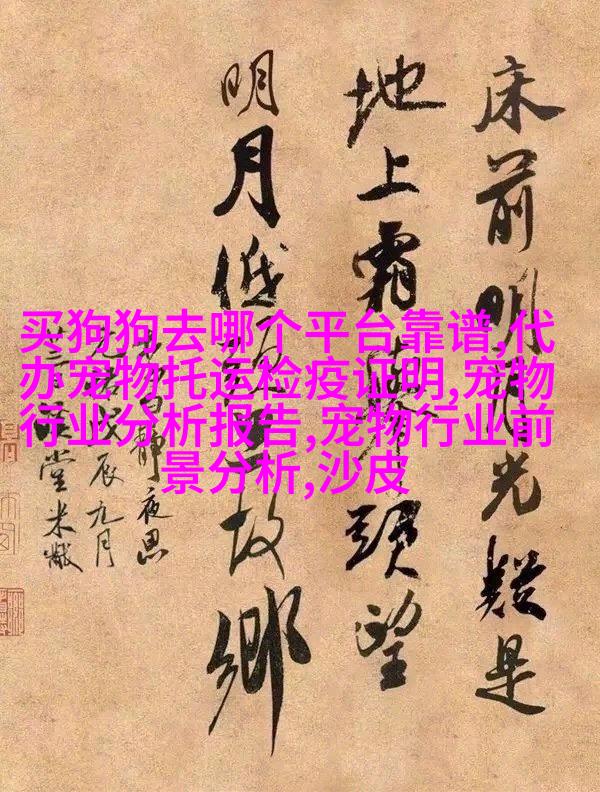 床前明月光疑是
地上霜舉頭望
明月低頭思故鄉
白靜夜思
元祐戊辰九月
堂米黻
买狗狗去哪个平台靠谱,代
办宠物托运检疫证明,宠物
行业分析报告,宠物行业前
景分析,沙皮